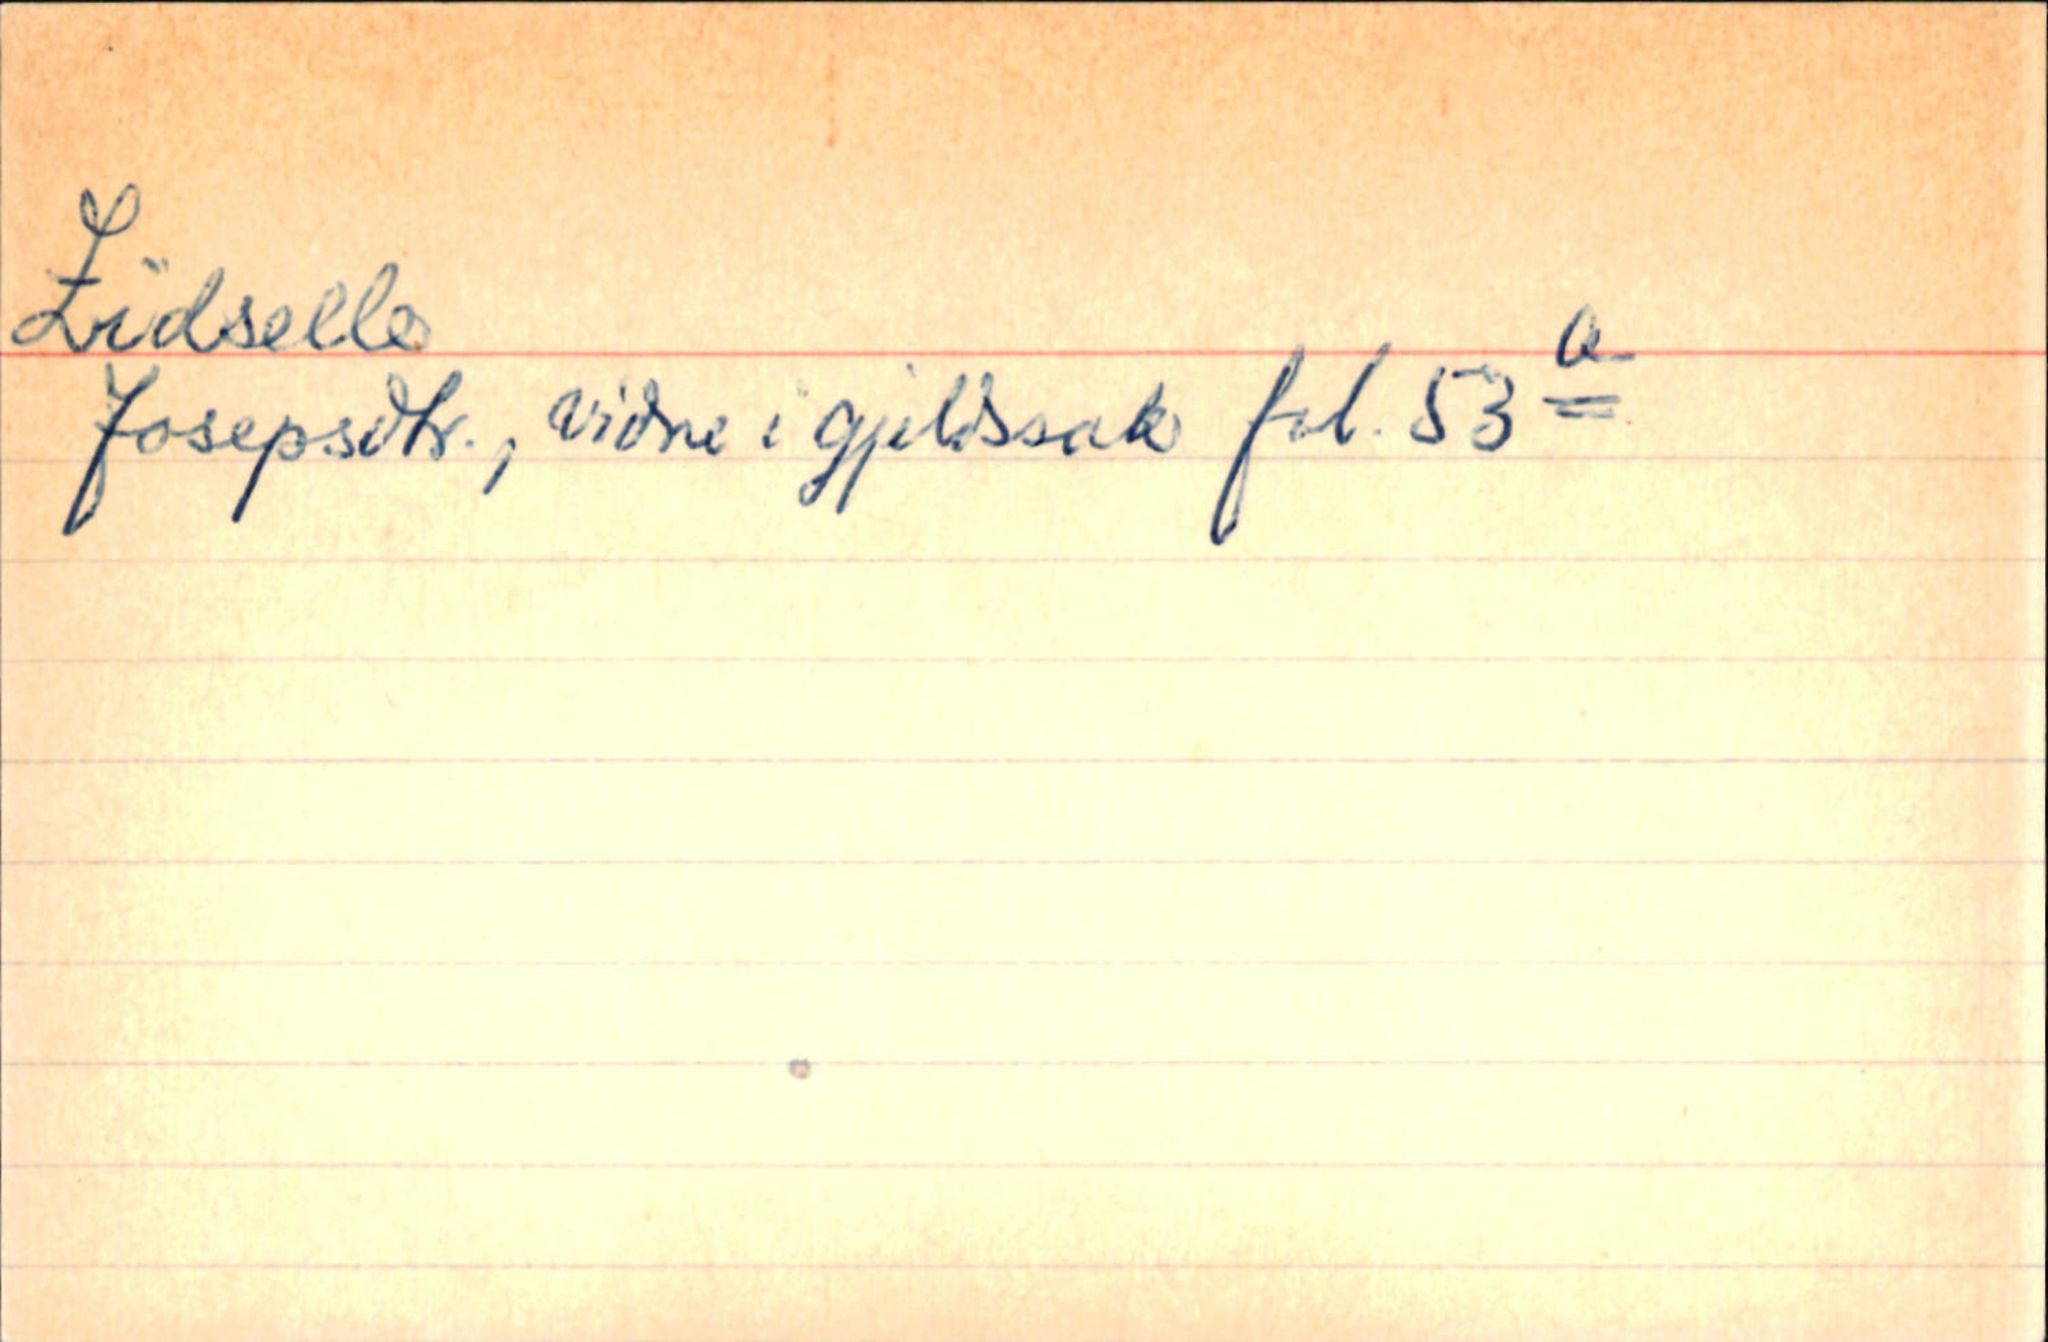 Lidselle
Josepsdtr., vidne i gjeldssak fol. 53 a